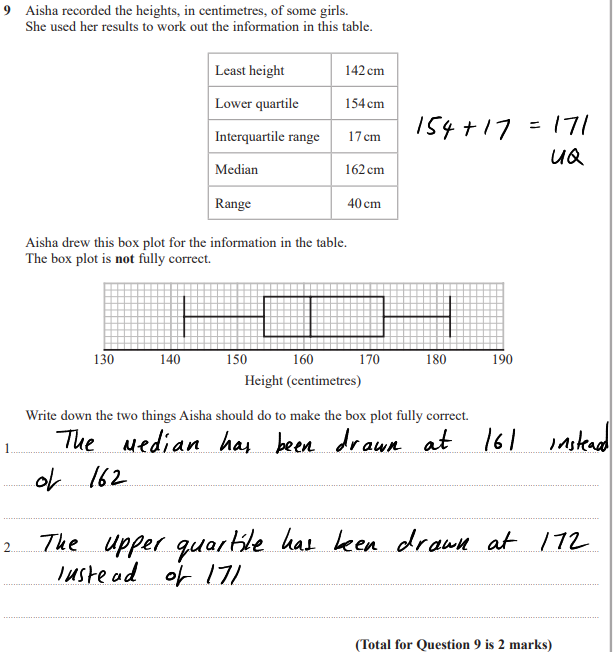 9 Aisha recorded the heights, in centimetres, of some girls.
She used her results to work out the information in this table.
Least height 142 cm
Lower quartile 154 cm
Interquartile range 17 cm
Median 162 cm
Range 40 cm
154 + 17 = 171
UQ
Aisha drew this box plot for the information in the table.
The box plot is not fully correct.
130 140 150 160 170 180 190
Height (centimetres)
Write down the two things Aisha should do to make the box plot fully correct.
1 The Median has been drawn at 161 instead
of 162
2 The upper quartile has been drawn at 172
Instead of 171
(Total for Question 9 is 2 marks)